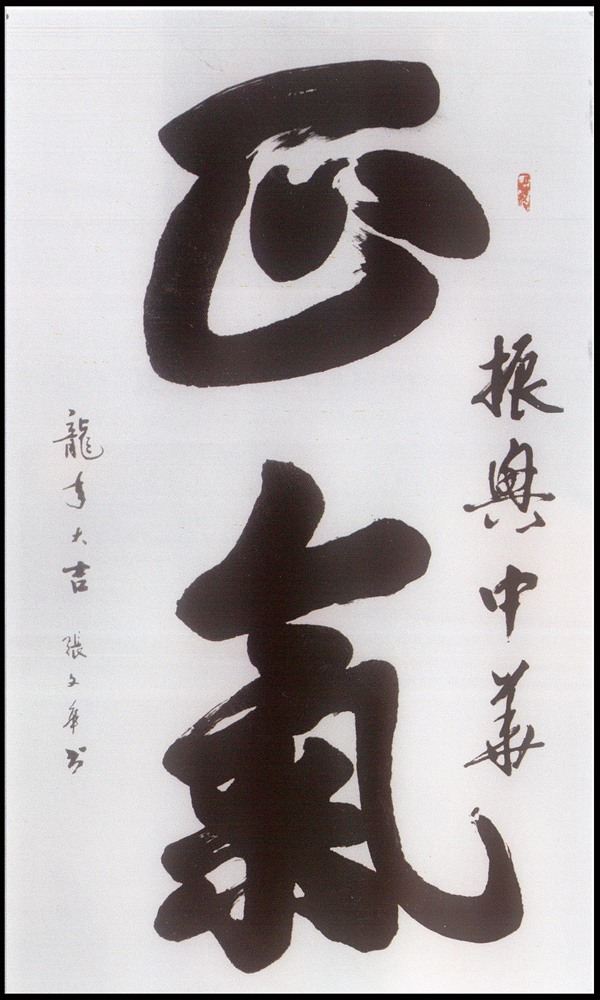 振興中華
正氣
龍年大吉 張文華书